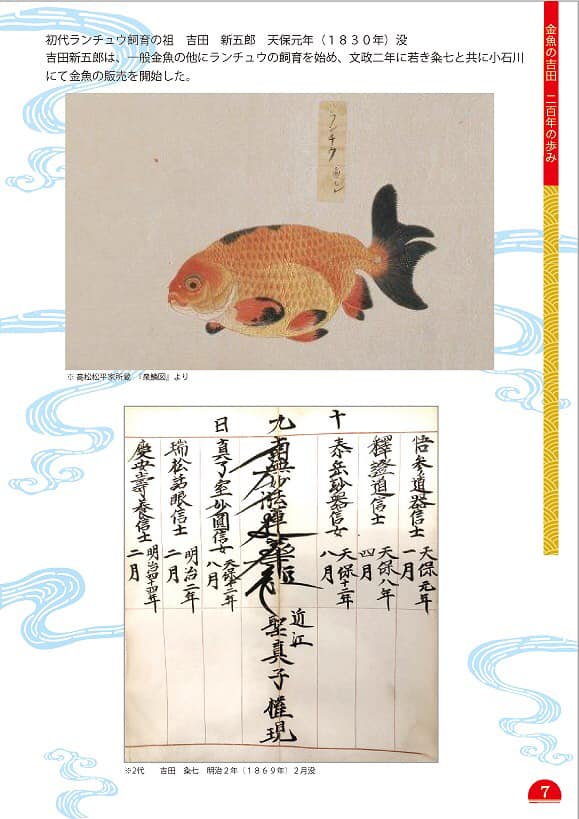 初代ランチュウ飼育の祖　吉田　新五郎　天保元年（１８３０年）没
吉田新五郎は、一般金魚の他にランチュウの飼育を始め、文政二年に若き粂七と共に小石川
にて金魚の販売を開始した。
金魚の吉田　二百年の歩み
ランチウ
※ 高松松平家所蔵　『衆鱗図』より
十
九
日
悟参道器信士　天保元年
一月
釋證道信士　天保八年
四月
泰岳妙器信女　天保十二年
八月
南無妙法蓮華経
近江
聖真子権現
真了室妙圓信女　天保十二年
八月
瑞松話眼信士　明治二年
二月
慶安壽春信士　明治四十四年
二月
※2代　吉田　粂七　明治２年（１８６９年）２月没
7